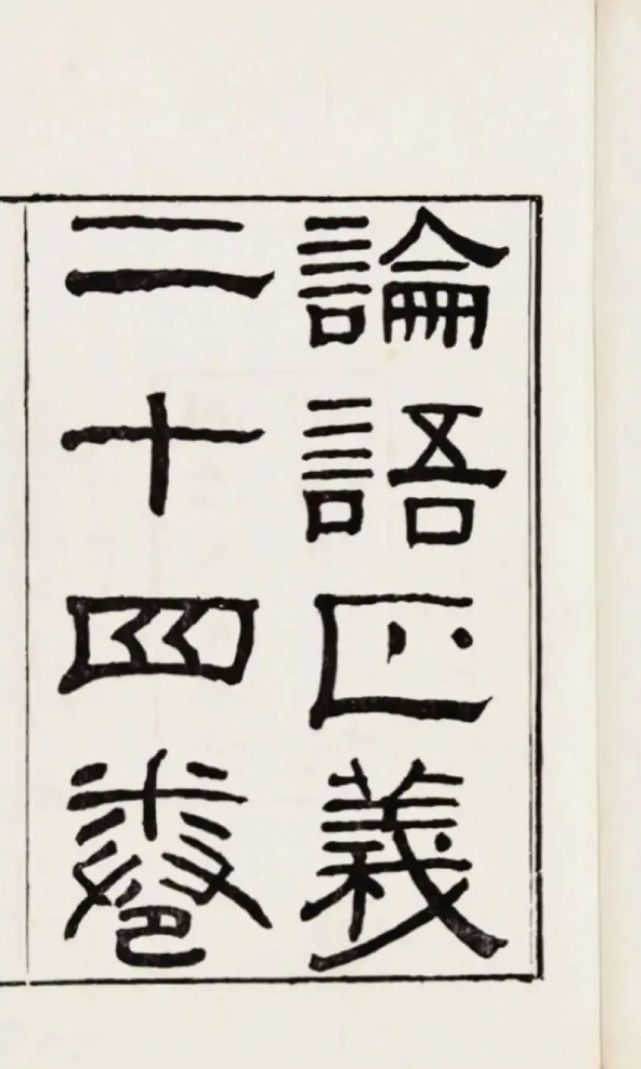 論語正義
二十四卷